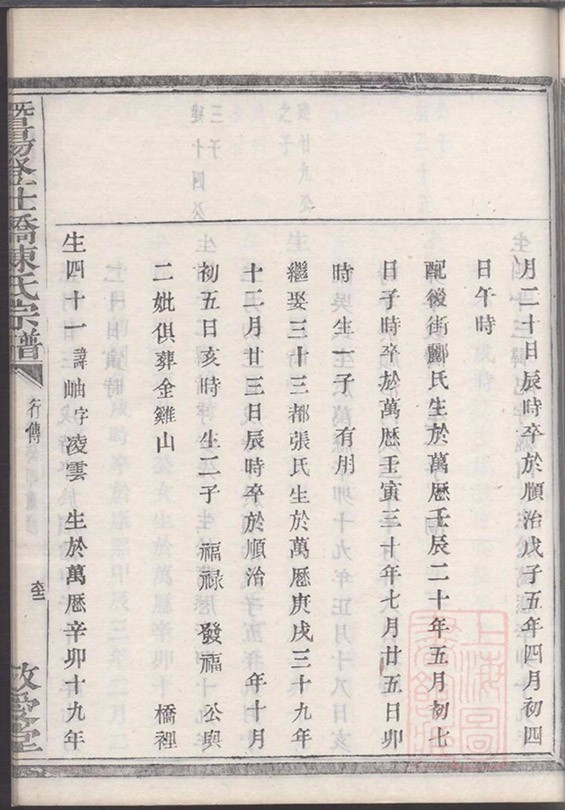 月二十日辰時卒於順治戊子五年四月初四
日午時
配後街酈氏生於萬歷壬辰二十年五月初七
日子時卒於萬歷壬寅三十年七月廿五日卯
時生一子 有用
繼娶三十三都張氏生於萬歷庚戌三十九年
十二月廿三日辰時卒於順治 年十月
初五日亥時生二子 福祿 發福 公與
二妣俱葬金雞山 橋裡
生四十一 諱岫字凌雲 生於萬歷辛卯十九年
暨陽登仕橋陳氏宗譜
行傳
敬愛堂